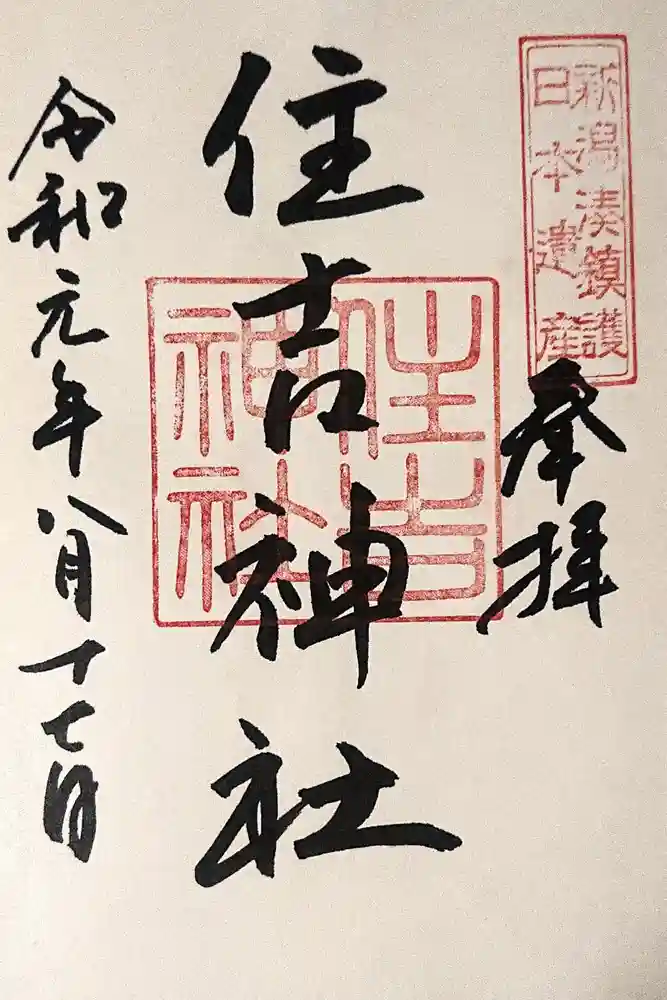 新潟湊鎮護
日本遺産
奉拝
住吉神社
住吉
神社
令和元年八月十七日